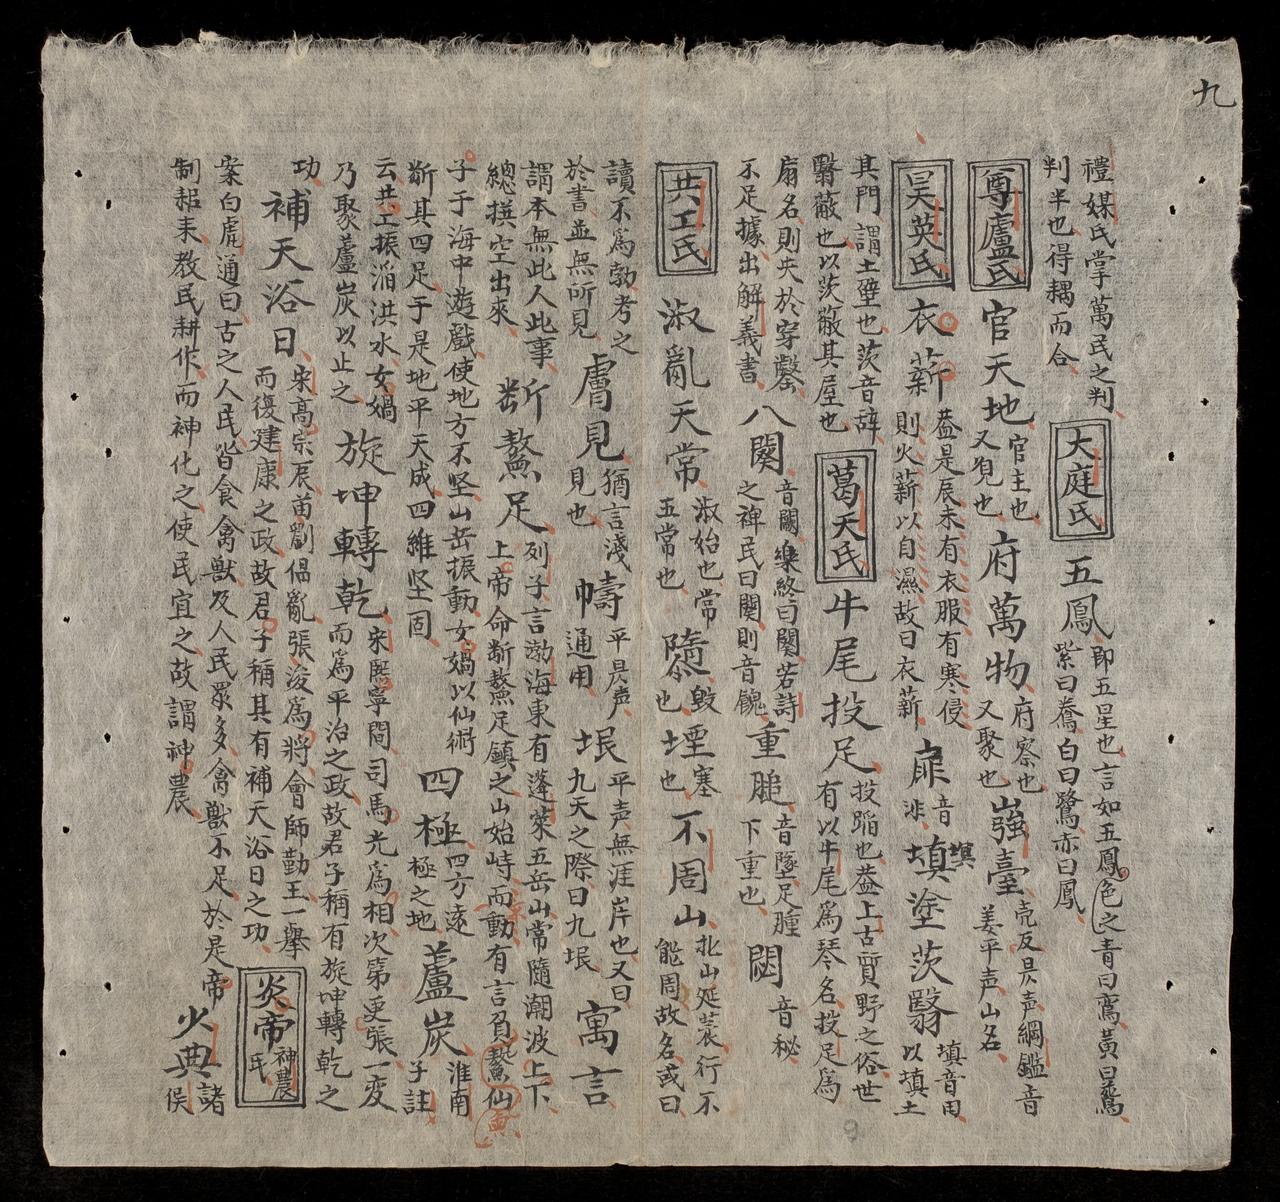 九
禮媒氏掌萬民之判
判半也得耦而合
大庭氏
五鳳
即五星也言如五鳳色之青曰鸞黃曰鵉
紫曰鶱白曰鷺赤曰鳳
尊盧氏
官天地
官主也
又皃也
府萬物
府察也
又聚也
嵹臺
壳反昃声綱鑑音
姜平声山名
昊英氏
衣薪
葢是辰未有衣服有寒侵
則火薪以自濕故曰衣薪
扉
音
渄
塡塗茨翳
塡
塡音田
以塡土
其門謂土壁也茨音辞
翳蔽也以茨蔽其屋也
葛天氏
牛尾投足
投蹈也葢上古質野之俗世
有以牛尾爲琴名投足爲
扇名則失於穿鑿
不足據出解義書
八闋
音闕樂終曰闋若詩
之禆民曰闋則音䫥
重膇
音墜足腫
下重也
閟
音秘
共工氏
淑亂天常
淑始也常
五常也
隳
毀
也
堙
塞
也
不周山
北山延袤行不
能周故名或曰
讀不爲敦考之
於書並無所見
膚見
猶言淺
見也
幬
平昃声
通用
垠
平声無涯岸也又曰
九天之際曰九垠
寓言
謂本無此人此事
總撰空出來
斷鰲足
列子言渤海東有蓬萊五岳山常隨潮波上下
上帝命斷鰲足鎮之山始峙而動有言負鰲仙
子于海中遊戲使地方不坚山岳振動女媧以仙術
斷其四足于是地平天成四維坚固
四極
四方逺
極之地
蘆炭
淮南
子註
云共工振滔洪水女媧
乃聚蘆炭以止之
旋坤轉乾
宋熙寧間司馬光爲相次第更張一変
而爲平治之政故君子稱有旋坤轉乾之
功
補天浴日
宋高宗辰苗劉倡亂張浚爲將會師勤王一舉
而復建康之政故君子稱其有補天浴日之功
炎帝
神農
氏
案白虎通曰古之人民皆食禽獸及人民衆多禽獸不足於是帝
制耜耒教民耕作而神化之使民宜之故謂神農
火典
諸
侯